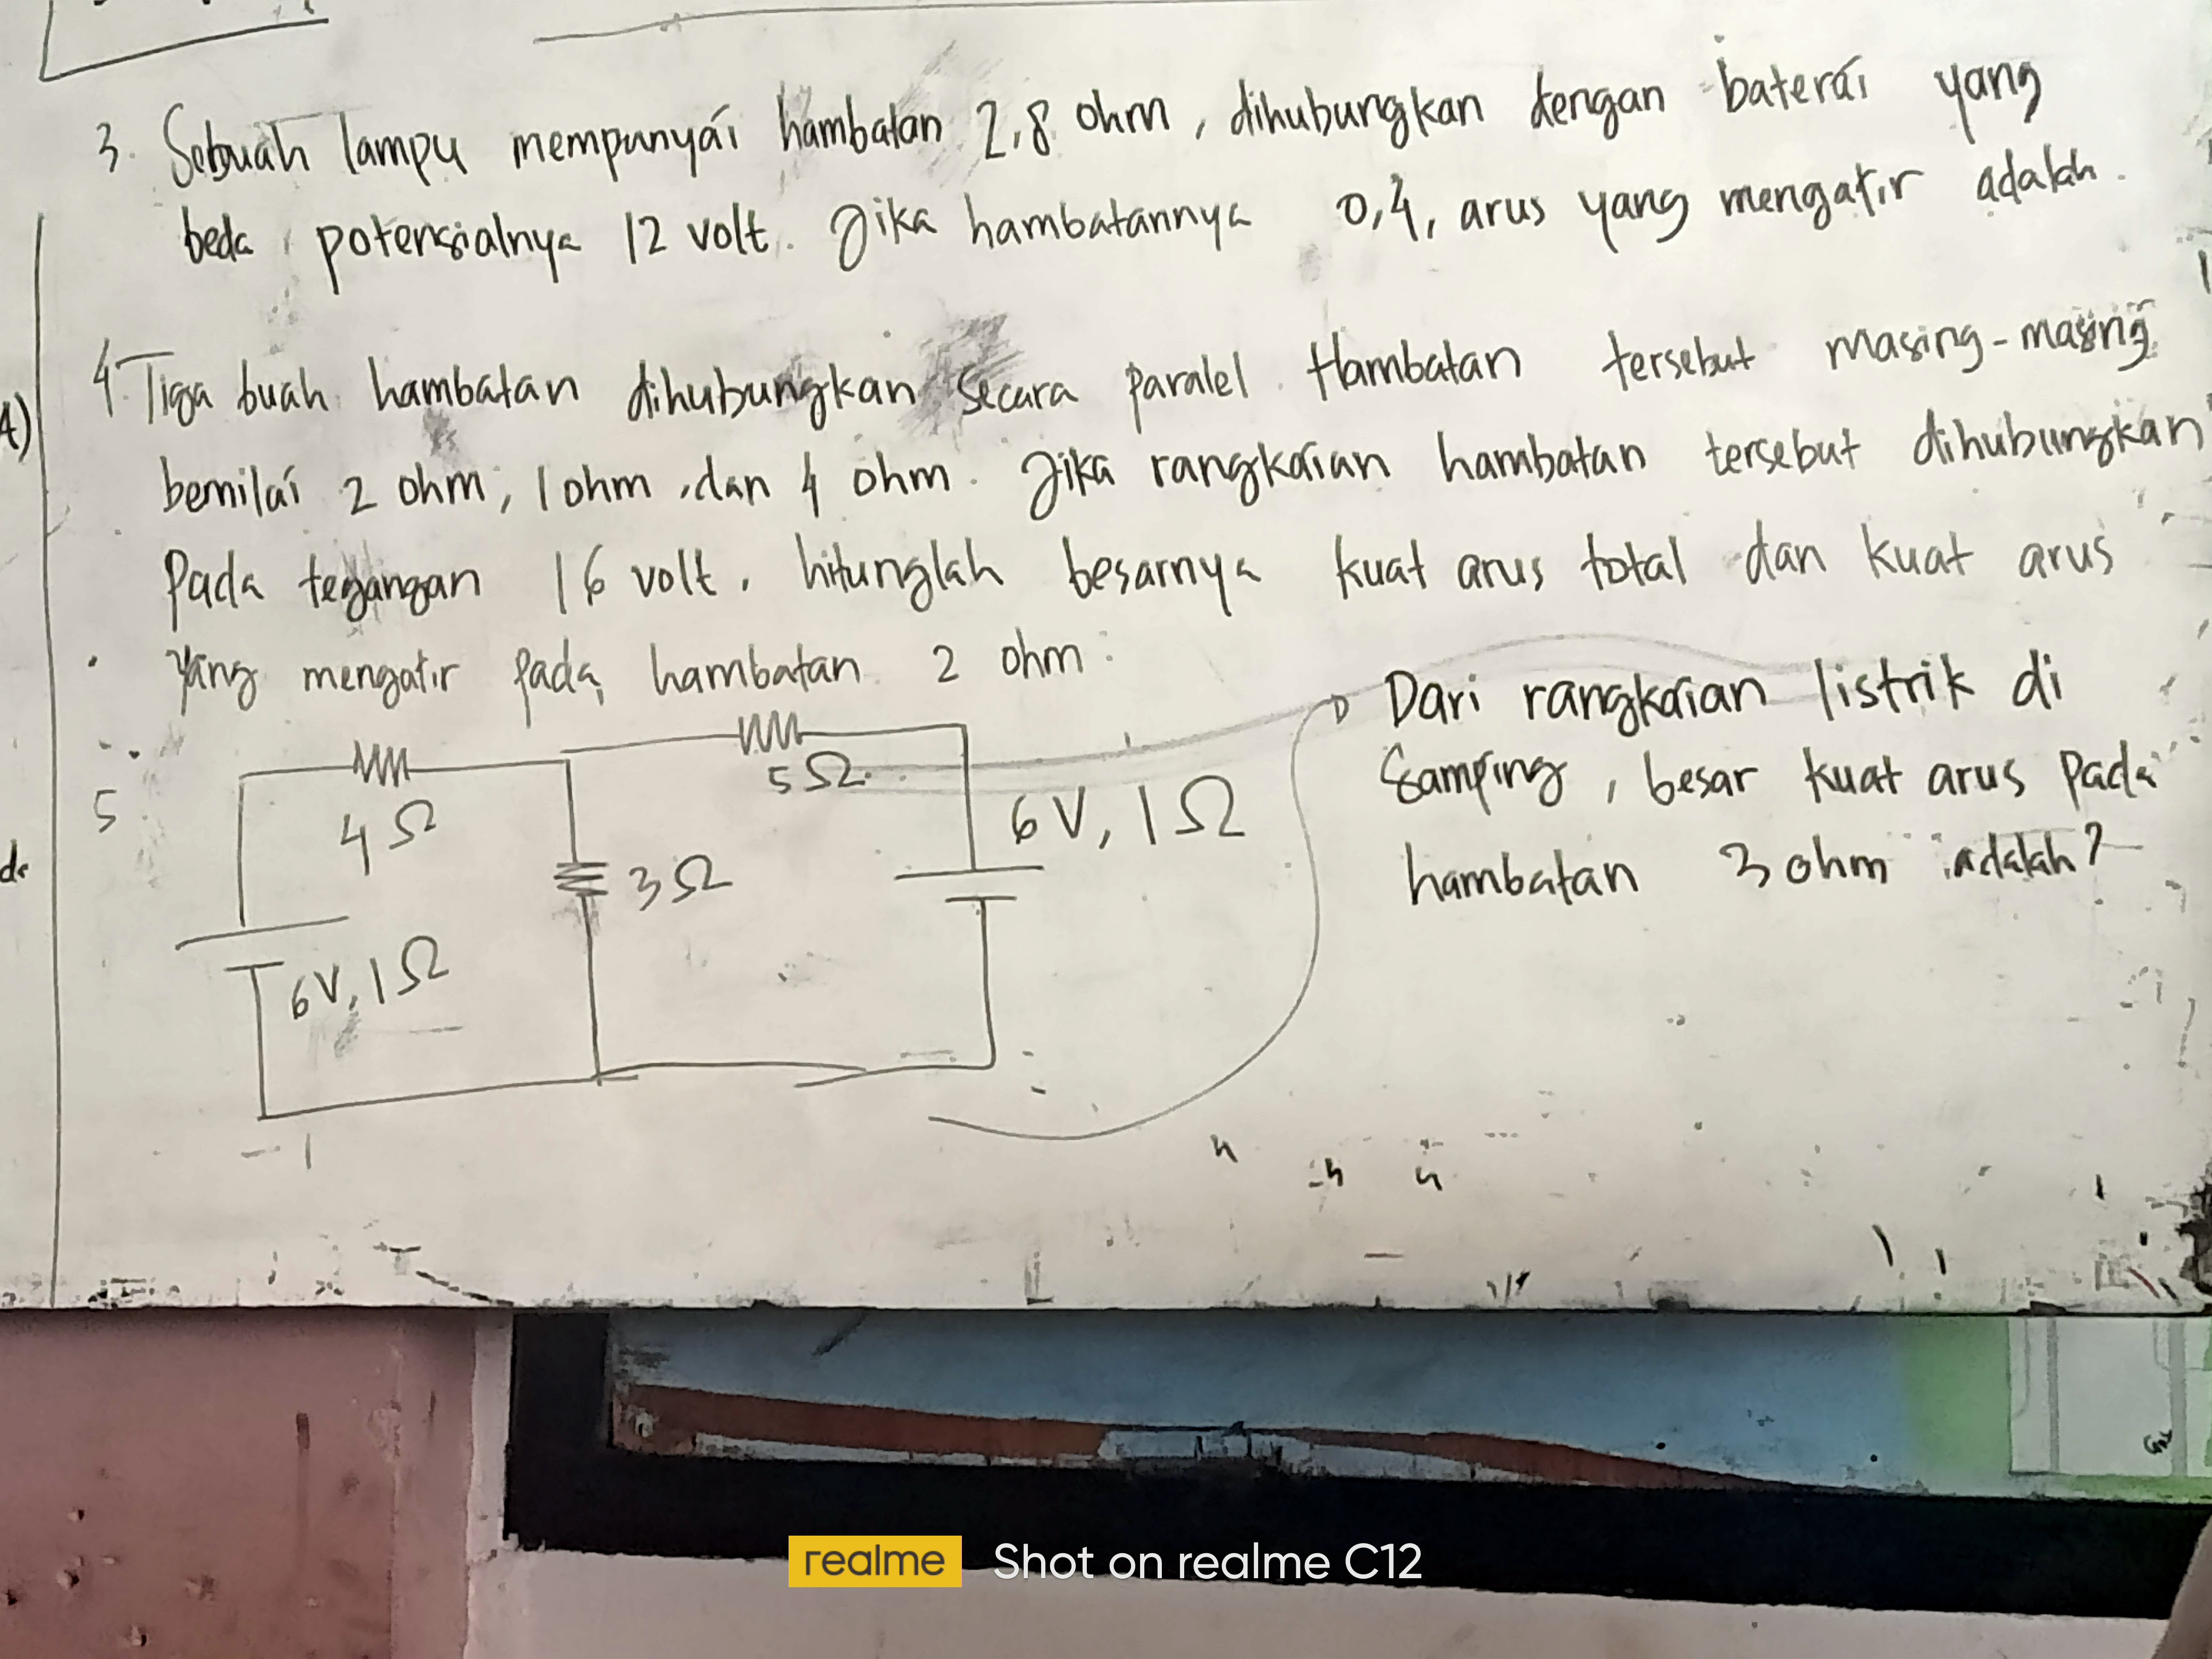 3. Sebuah lampu mempunyai hambatan 2,8 ohm, dihubungkan dengan baterai yang
beda potensialnya 12 volt. Jika hambatannya 0,4, arus yang mengatir adalah.
4. Tiga buah hambatan dihubungkan secara paralel. Hambatan tersebut masing-masing
A)
bernilai 2 ohm, 1 ohm, dan 4 ohm. Jika rangkaian hambatan tersebut dihubungkan
Pada tegangan 16 volt, hitunglah besarnya kuat arus total dan kuat arus
yang mengatir pada hambatan 2 ohm:
Dari rangkaian listrik di
samping, besar kuat arus pada
hambatan 3 ohm adalah?
5
4Ω
5Ω
6V, 1Ω
3Ω
6V, 1Ω
realme Shot on realme C12